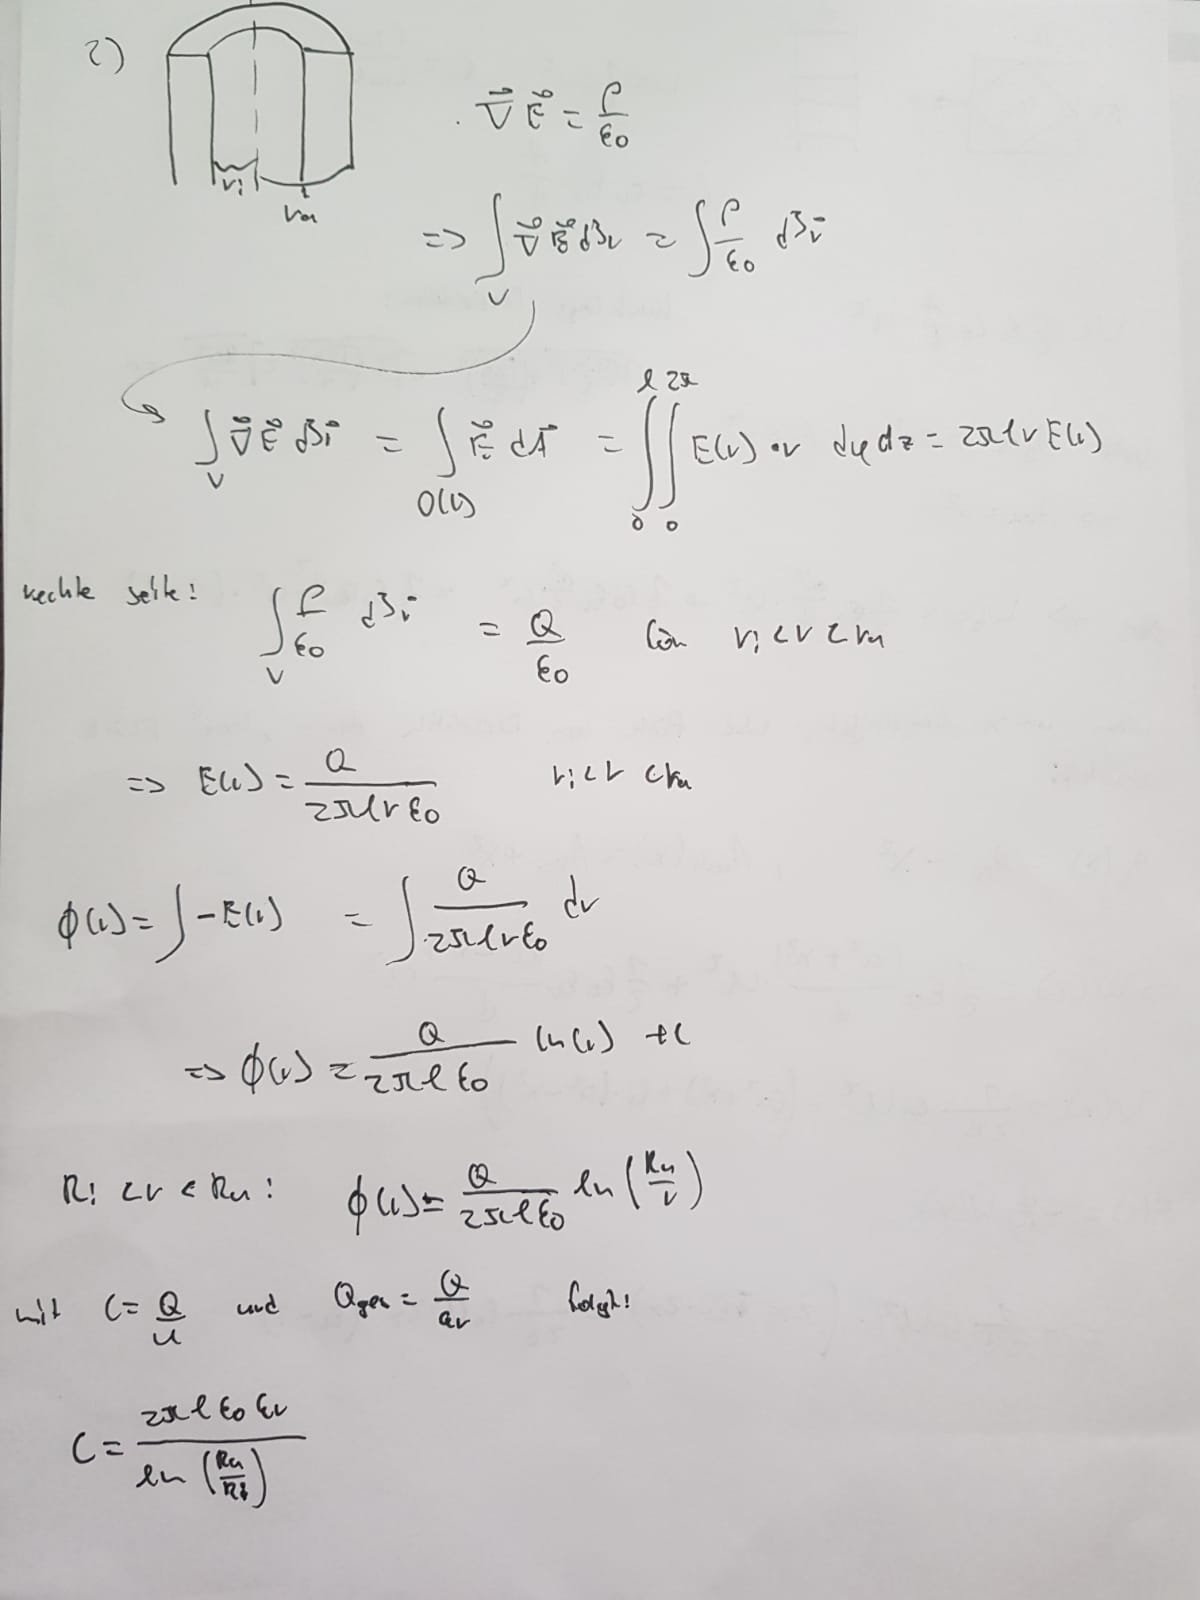 2)
∇⃗ E⃗ = ρ/ε0
ri
ra
=> ∫_V ∇⃗ E⃗ d³r = ∫ ρ/ε0 d³r⃗
∫_V ∇⃗ E⃗ d³r⃗ = ∫_O(V) E⃗ dA⃗ = ∫_0^l ∫_0^2π E(r) · r dφ dz = 2πlr E(r)
rechte Seite: ∫_V ρ/ε0 d³r⃗ = Q/ε0 für ri < r < ra
=> E(r) = Q/(2πlrε0) ri < r < ra
ϕ(r) = ∫ -E(r) = ∫ Q/(2πlrε0) dr
=> ϕ(r) = Q/(2πlε0) ln(r) + C
Ri < r < Ra: ϕ(r) = Q/(2πlε0) ln(Ra/r)
mit C = Q/U und Qges = Q/εr folgt:
C = 2πlε0εr / ln(Ra/Ri)